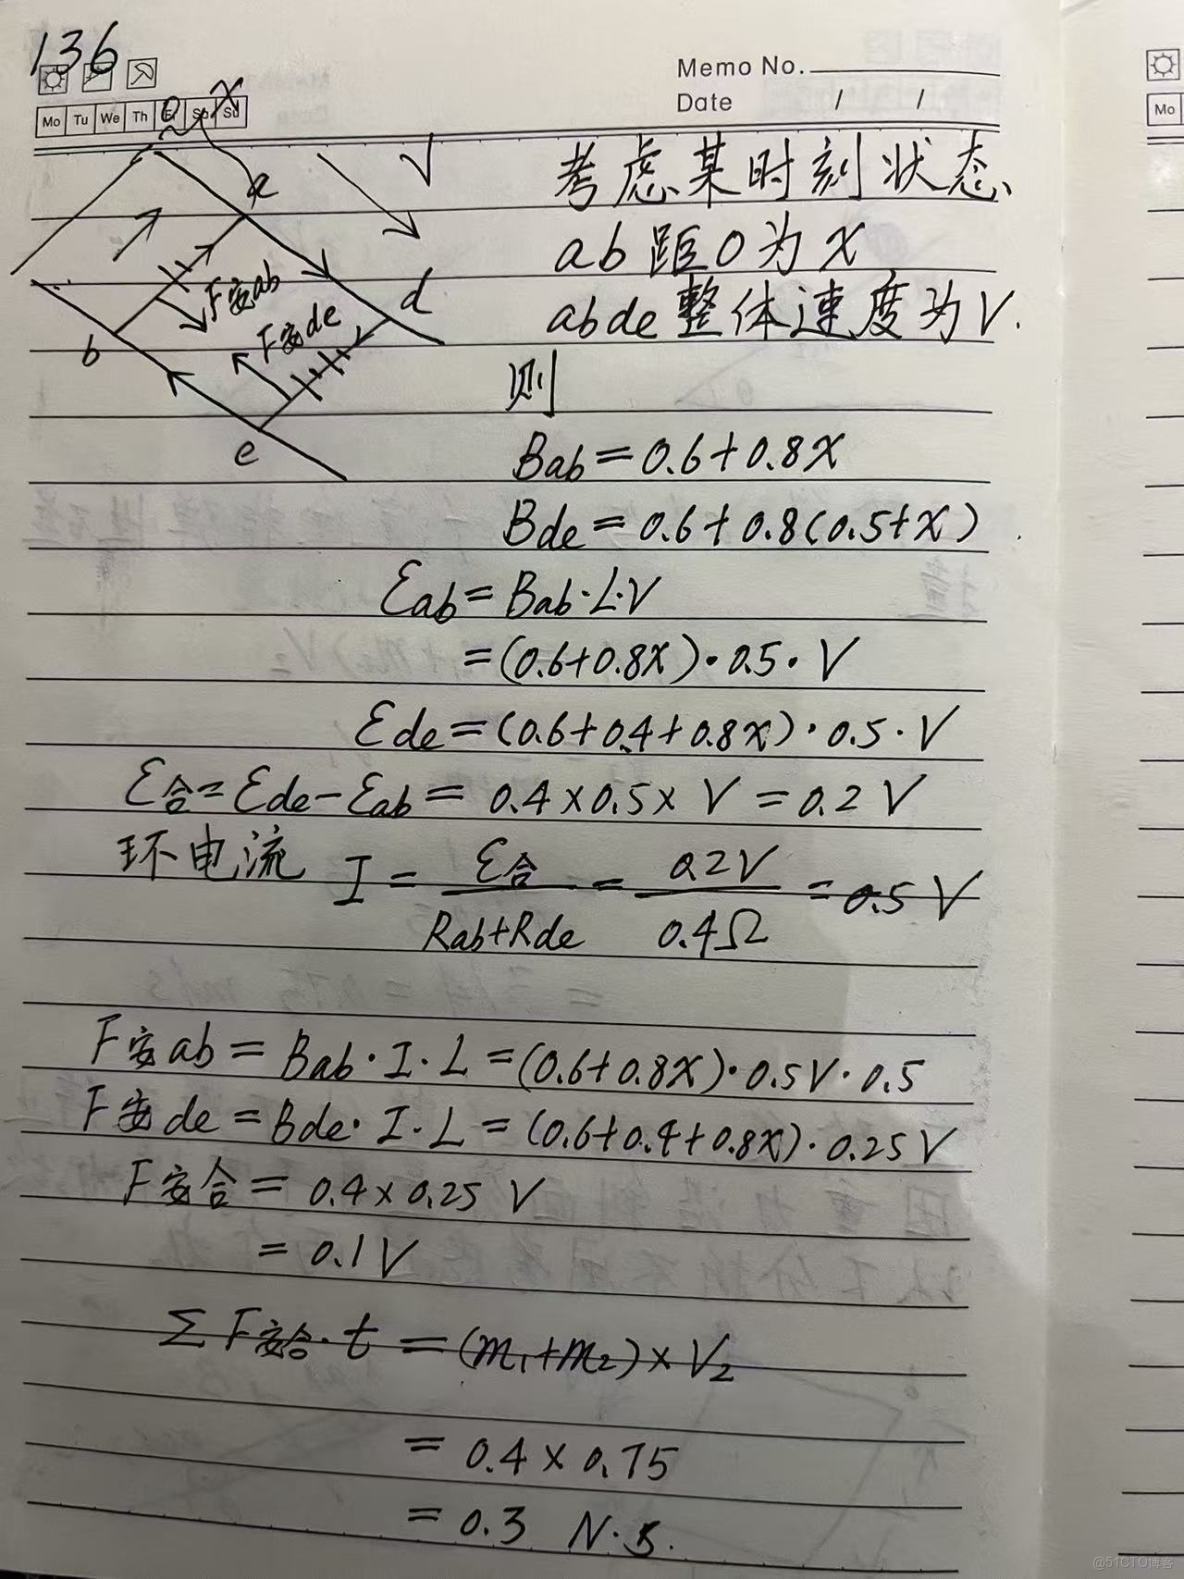 136
Memo No.
Date / /
Mo Tu We Th Fr Sa Su
Mo
O
x
a
d
b
e
F安ab
F安de
V
考虑某时刻状态、
ab距O为x
abde整体速度为V.
则
Bab=0.6+0.8x
Bde=0.6+0.8(0.5+x)
εab=Bab·L·V
=(0.6+0.8x)·0.5·V
εde=(0.6+0.4+0.8x)·0.5·V
ε合=εde-εab=0.4×0.5×V=0.2V
环电流 I=ε合/(Rab+Rde)=0.2V/0.4Ω=0.5V
F安ab=Bab·I·L=(0.6+0.8x)·0.5V·0.5
F安de=Bde·I·L=(0.6+0.4+0.8x)·0.25V
F安合=0.4×0.25V
=0.1V
ΣF安合·t=(m₁+m₂)×V₂
=0.4×0.75
=0.3 N·s.
@51CTO博客